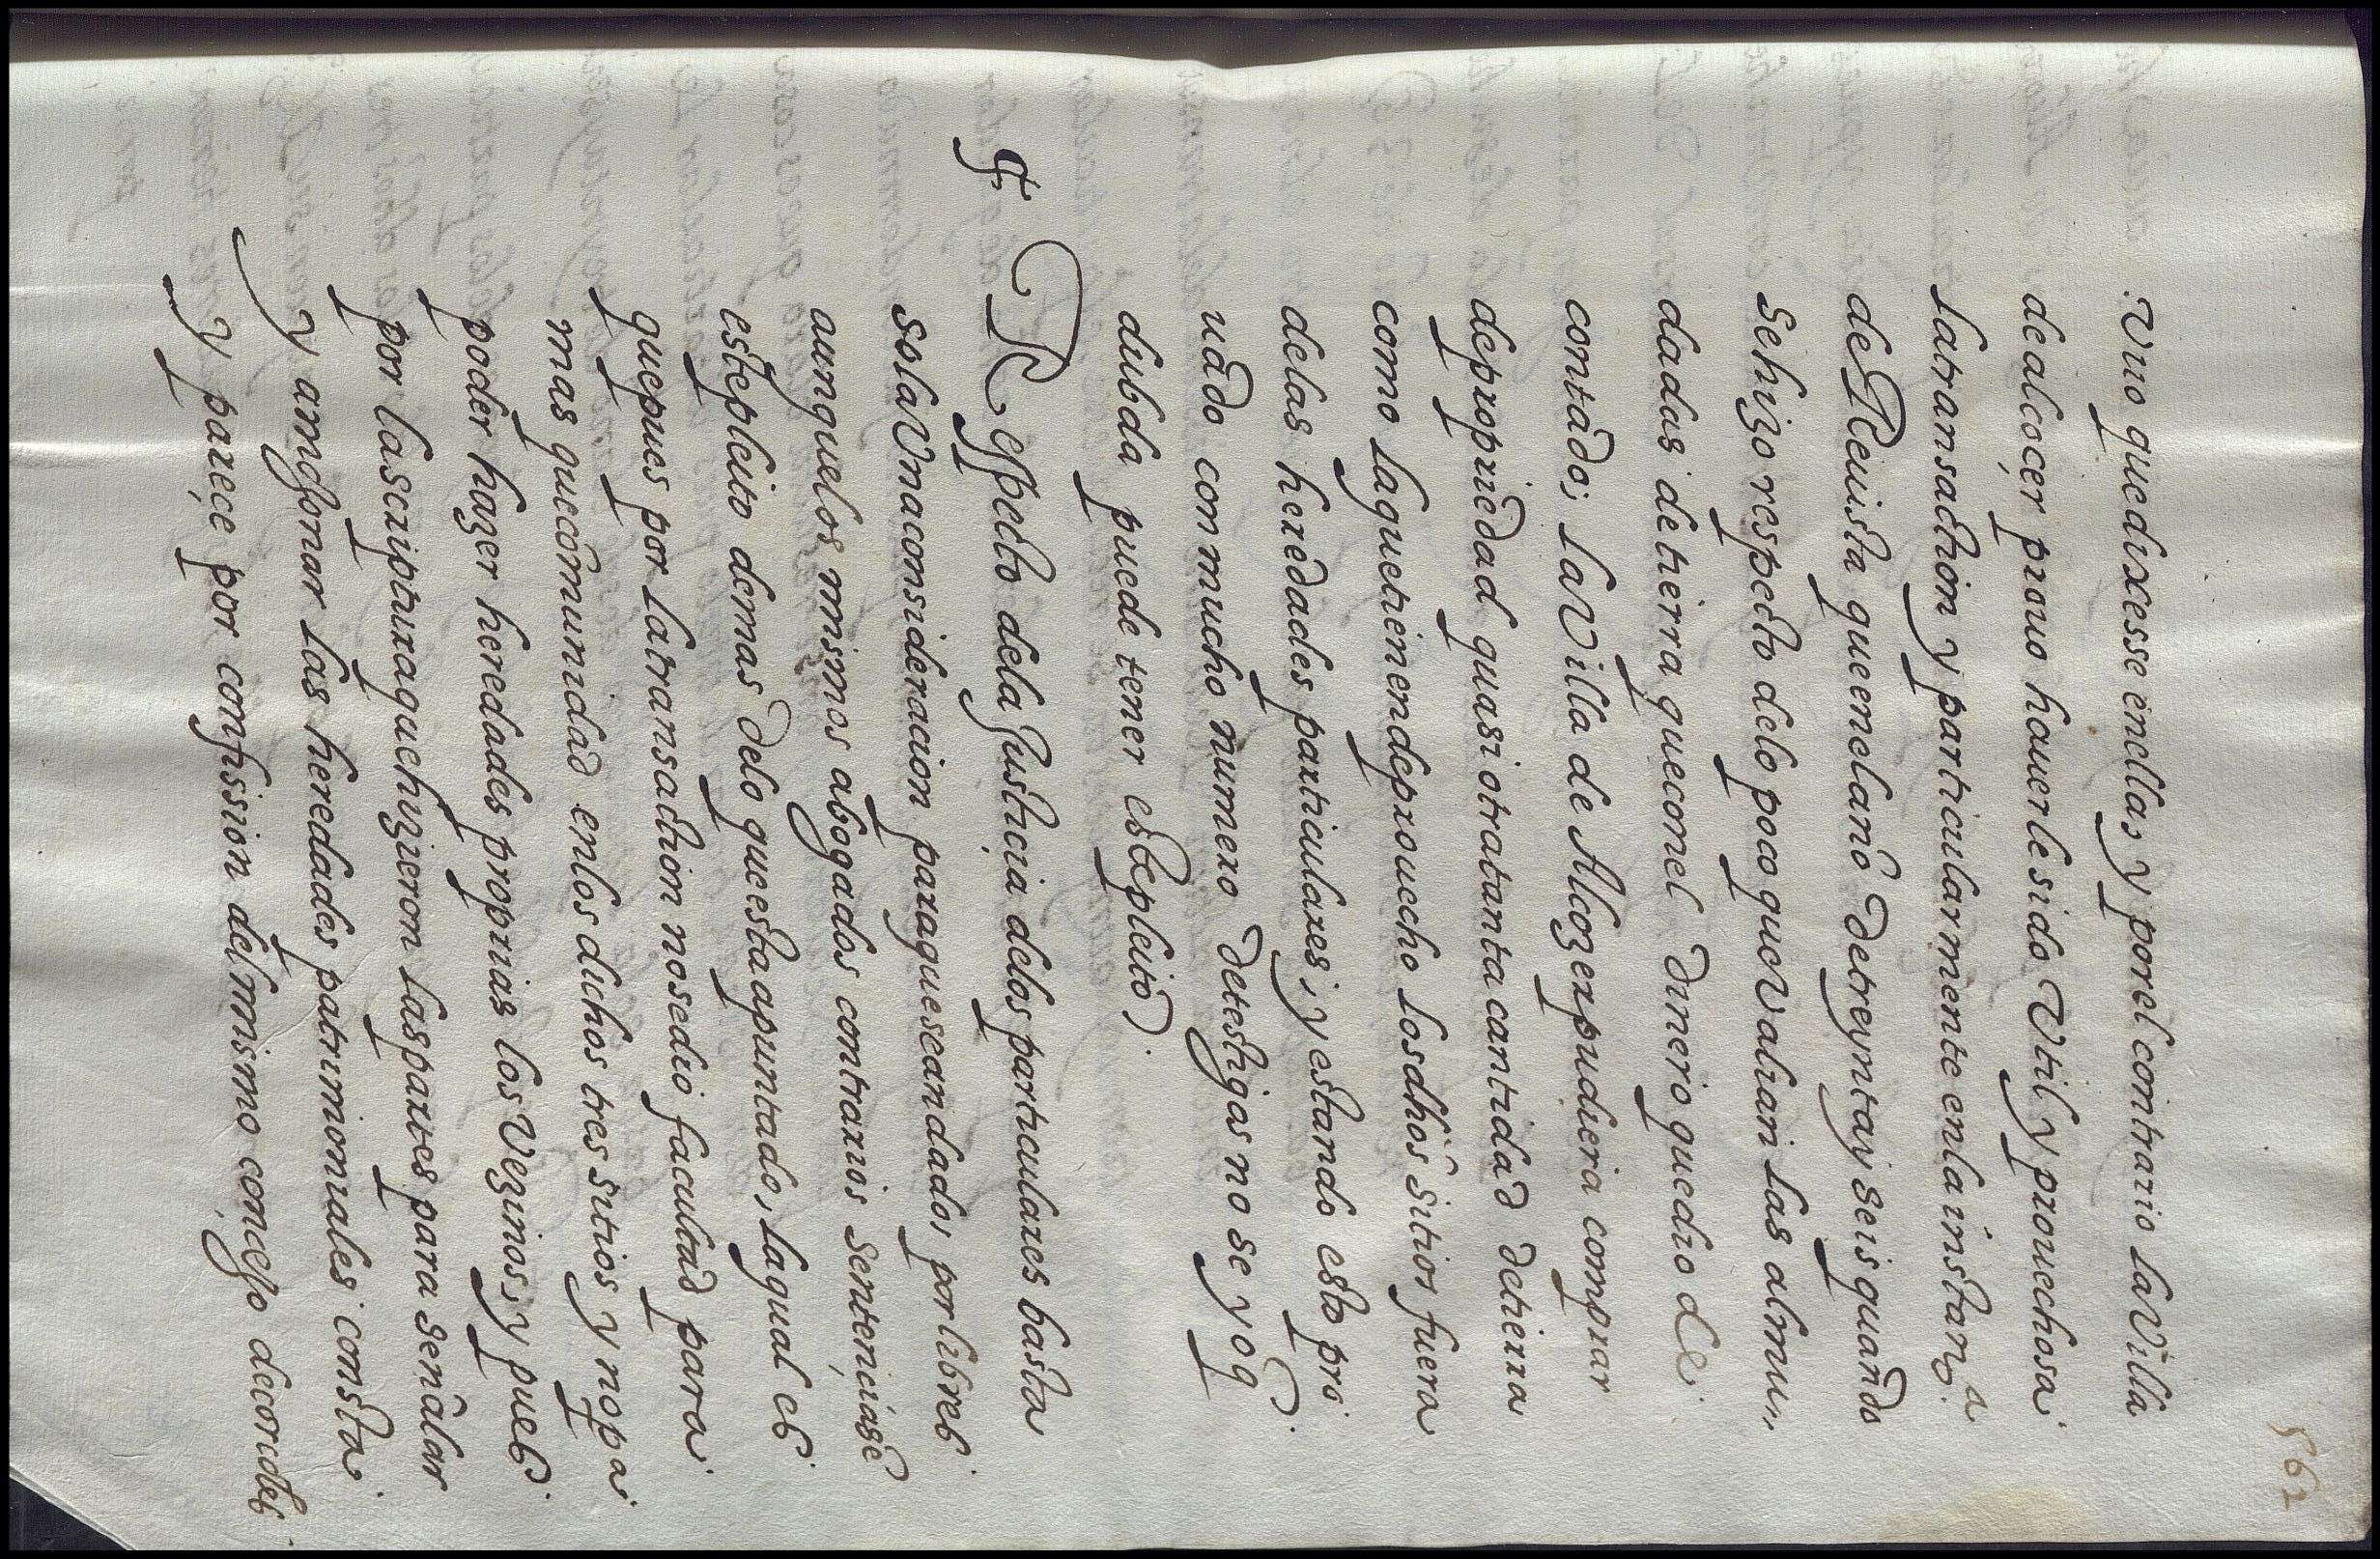 562
vuo que dixesse en ellas, y por el contrario la Villa
de alcoçer prouo hauerle sido Vtil y prouechosa
la transaction y particularmente en la instança
de Reuista que en el año de treynta y seis quando
se hizo respecto de lo poco que Valian las almu,,
dadas de tierra que con el dinero que dio de
contado; la Villa de Alcozer pudiera comprar
de propriedad quasi otra tanta cantidad de tierra
como la que tienen de prouecho los dhos Sitios fuera
de las heredades particulares, y estando esto pro
uado con mucho numero de testigos no se yo q
dubda puede tener este pleito.
Respecto de la Justiçia de los particulares basta
sola Vna consideracion para que sean dados, por libres
aunque los mismos abogados contrarios sentençiasē
este pleito demas de lo que esta apuntado, la qual es
que pues por la transaction no se dio facultad para
mas que comunidad en los dichos tres sitios y no pa
poder hazer heredades proprias los Vezinos, y pues
por la scriptura que hizieron las partes para señalar
y amojonar las heredades patrimoniales consta
y pareçe por confission del mismo conçejo de cordes